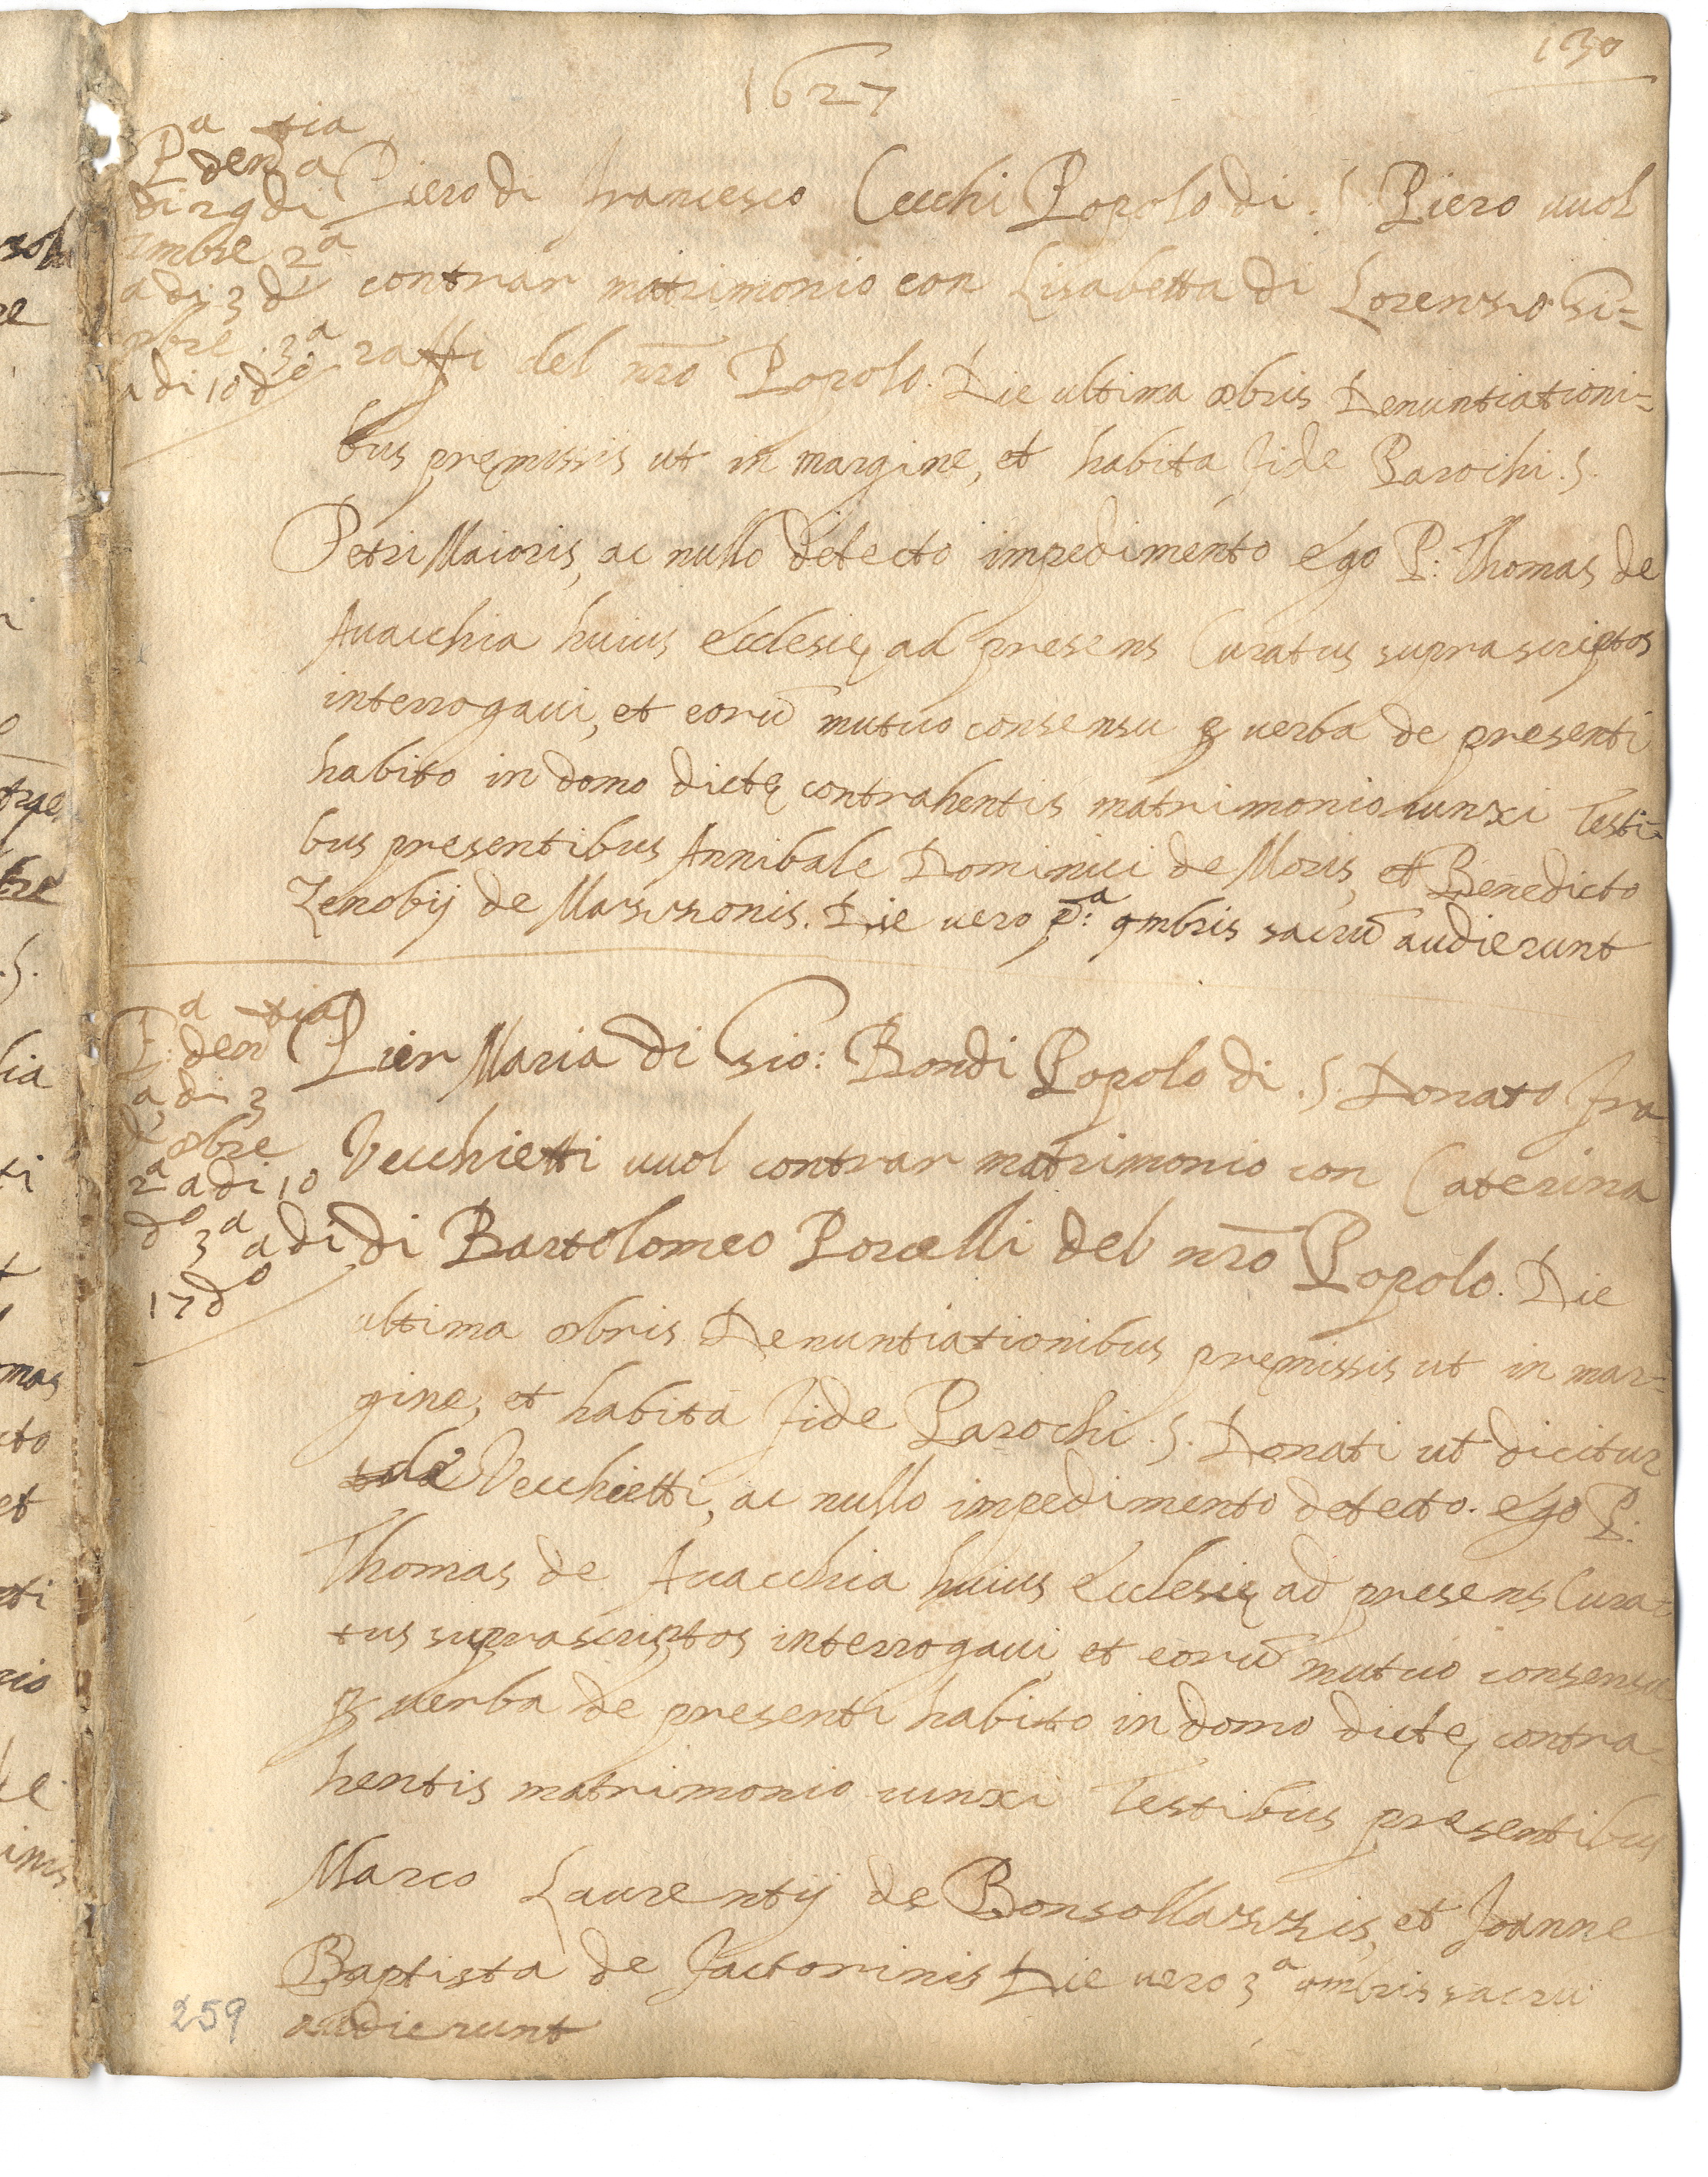 130
1627
Pa dentia
a di 29 di
7mbre 2a
a di 3 do
8bre. 3a
a di 10 do
Piero di francesco Cecchi Popolo di .S. Piero vuol
contrar matrimonio con Lisabetta di Lorenzo Gi=
raffi del nro Popolo. Die ultima 8bris Denuntiationi=
bus premissis ut in margine, et habita fide Parochi .S.
Petri Maioris, ac nullo detecto impedimento ego P: Thomas de
Avacchia huius Ecclesię ad presens Curatus suprascriptos
interrogavi, et eorū mutuo consensu p verba de presenti
habito in domo dictę contrahentis matrimonio iunxi Testi=
bus presentibus Annibale Dominici de Moris, et Benedicto
Zenobij de Mazzonis. Die vero p:a 9mbris sacrū audierunt
P:a dentia
a di 3
d 8bre
2a a di 10
do 3a a di
17 do
Pier Maria di Gio: Bondi Popolo di .S. Donato fra
Vecchietti vuol contrar matrimonio con Caterina
di Bartolomeo Porcelli del nro Popolo. Die
ultima 8bris Denuntiationibus premissis ut in mar=
gine, et habita fide Parochi .S. Donati ut dicitur
de Vecchietti, ac nullo impedimento detecto. ego P:
Thomas de Avacchia huius Ecclesię ad presens Cura=
tus suprascriptos interrogavi et eorū mutuo consensu
p verba de presenti habito in domo dictę contra=
hentis matrimonio iunxi Testibus presentibus
Marco Laurentij de Bonsollazzis, et Joanne
Baptista de Factorinis Die vero 3a 9mbris sacrū
audierunt
259